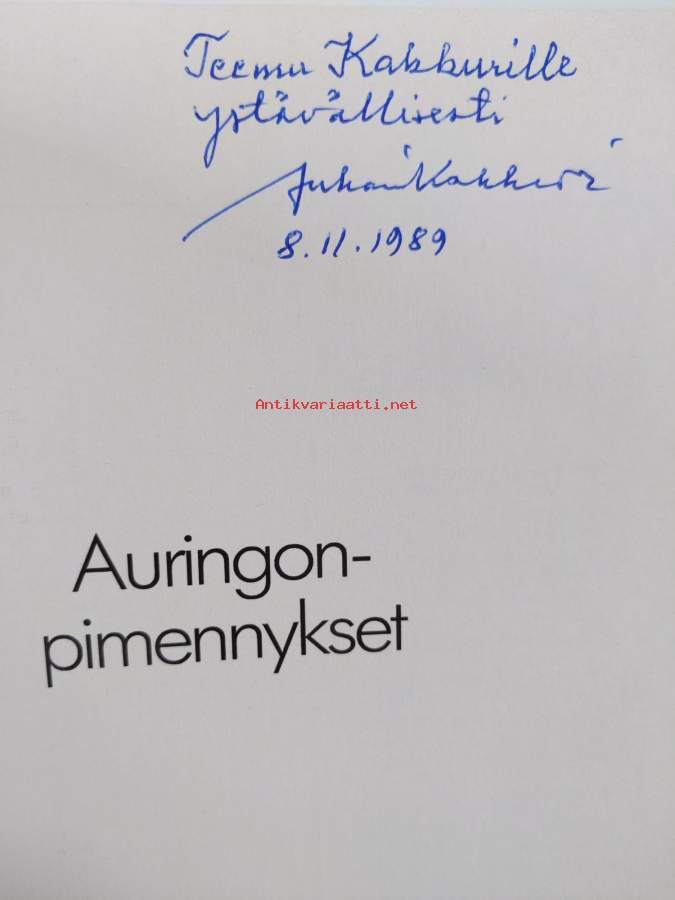 Teemu Kakkurille
ystävällisesti
Juhani Kakkuri
8.11.1989
Antikvariaatti.net
Auringon-
pimennykset